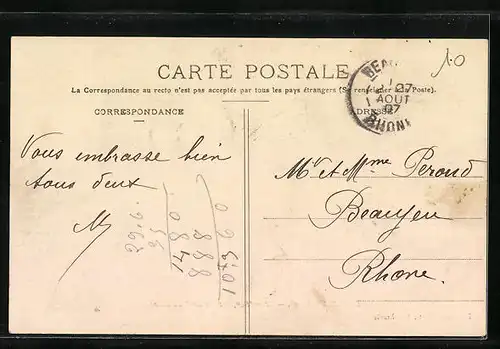 10
CARTE POSTALE
La Correspondance au recto n'est pas acceptée par tous les pays étrangers (Se renseigner à la Poste).
CORRESPONDANCE
ADRESSE
BEAU
27
AOUT
07
RHONE
Vous embrasse bien
tous deux
M
Mr et Mme Peroud
Beaujeu
Rhone.
29.6.
35
1480
888
10360